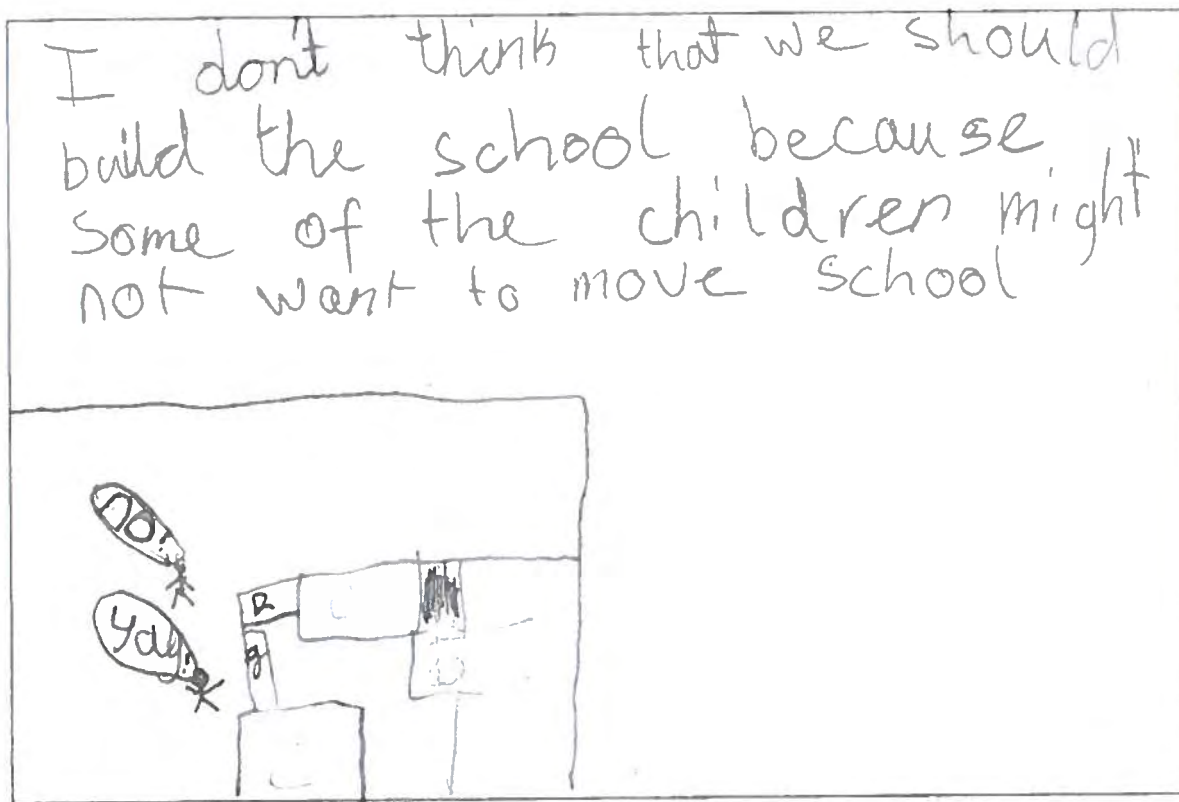 I don't think that we should
build the school because
some of the children might
not want to move school
no!
Yay!
R
g